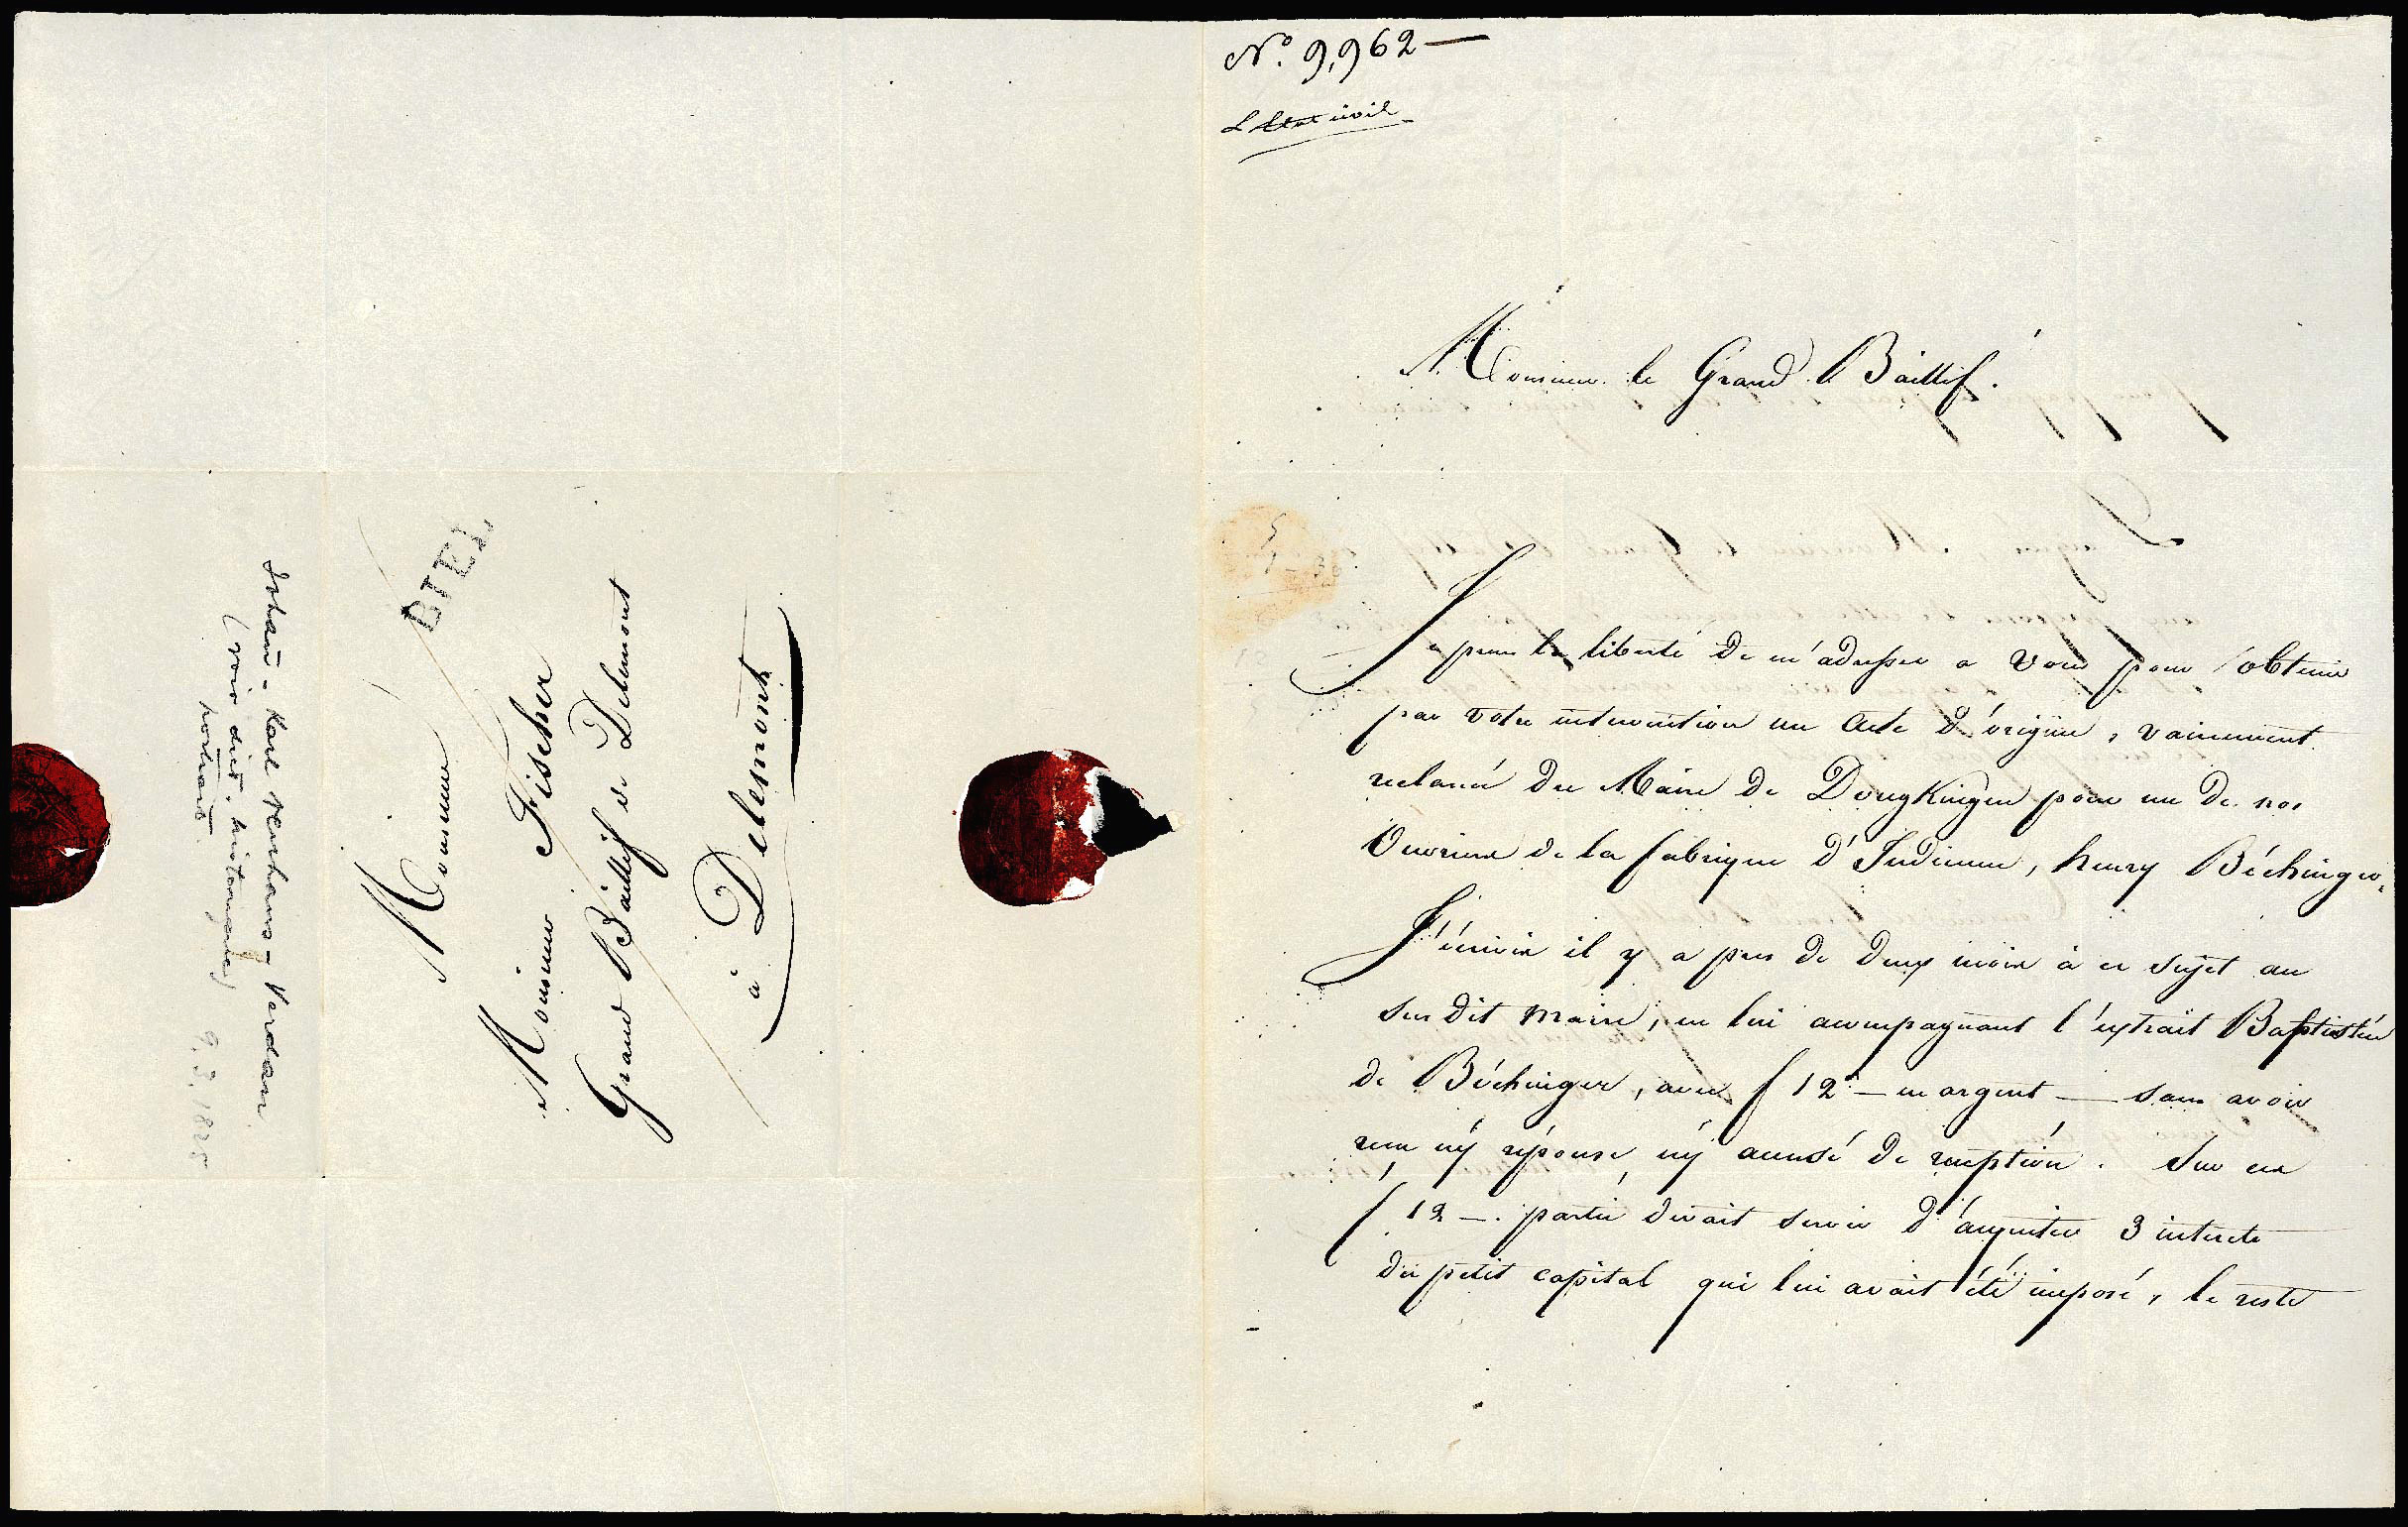 BIEL
Monsieur
Monsieur Fischer
Grand Baillif de Delemont
à Delemont
Johann-Karl Neuhaus-Verdan
(voir dict. historique)
portrait
9.3.1825
No. 9,962—
L Etat civil
Monsieur le Grand Baillif.
Je prens la liberté de m'adresser a Vous pour obtenir
par votre intervention un Acte d'origine, vainement
reclamé du Maire de Dougkingen pour un de nos
Ouvriers de la fabrique d'Indienne, henry Béchinger.
J'écrivis il y a pres de deux mois à ce sujet au
sus dit Maire, en lui acompagnant l'extrait Baptistère
de Béchinger, avec f 12 — en argent — sans avoir
reçu ny réponse, ny accusé de reception. Sur ces
f 12 —. partie devait servir d'acquiter 3 interets
du petit capital qui lui avait été imposé, le reste